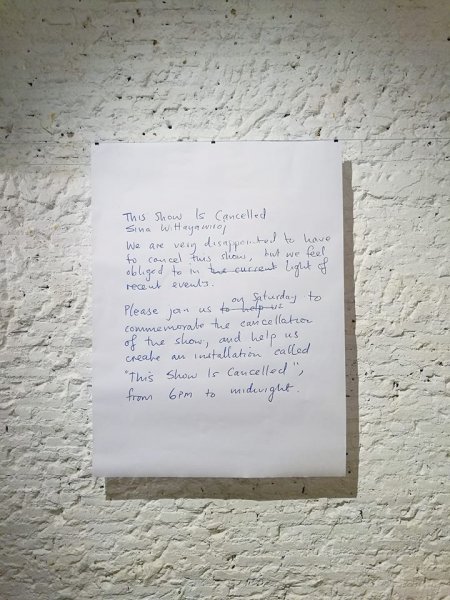 This Show Is Cancelled
Sina Wittayawiroj
We are very disappointed to have
to cancel this show, but we feel
obliged to in the current light of
recent events.
on Saturday to
Please join us to help us
commemorate the cancellation
of the show, and help us
create an installation called
"This Show Is Cancelled",
from 6pm to midnight.